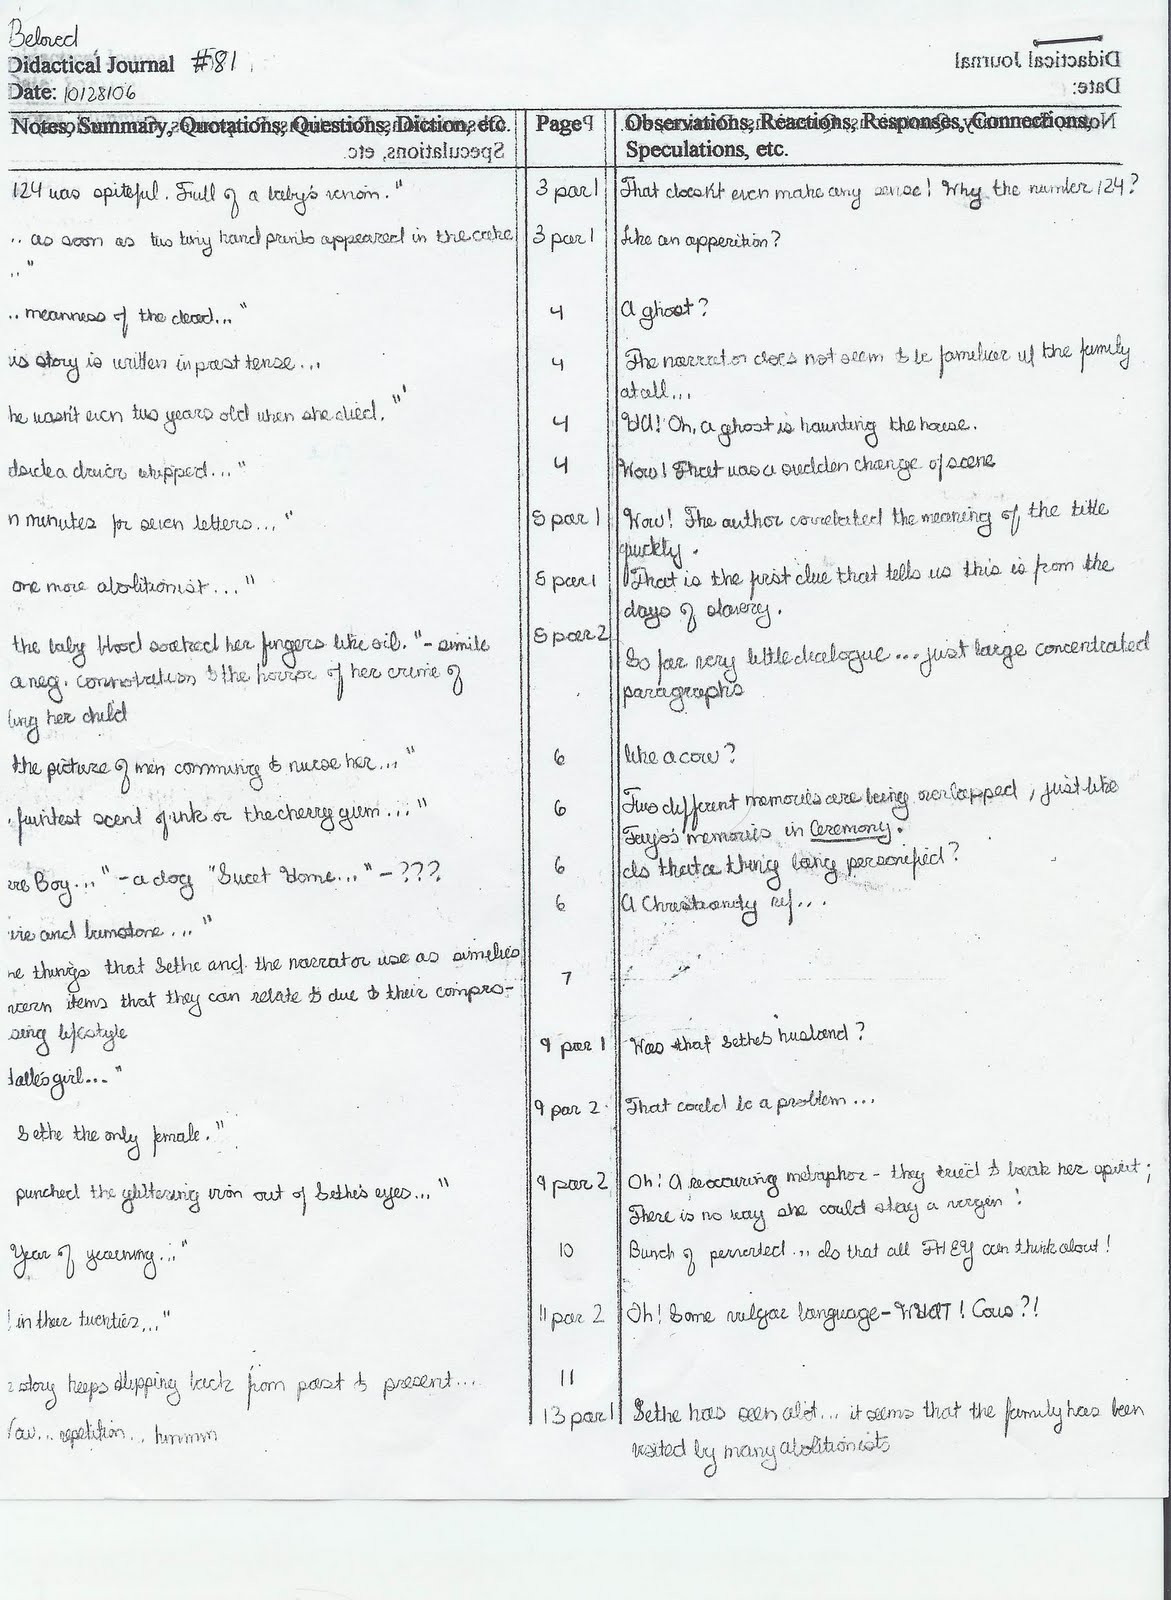 Beloved
Didactical Journal #81
Date: 10/28/06
Didactical Journal
Date:
Notes, Summary, Quotations, Questions, Diction, etc. Page Observations, Reactions, Responses, Connections,
Speculations, etc.
124 was spiteful. Full of a baby's venom." 3 par 1 That doesn't even make any sense! Why the number 124?
.. as soon as two tiny hand prints appeared in the cake 3 par 1 Like an apperition?
.."
.. meanness of the dead..." 4 A ghost?
is story is written in past tense... 4 The narrator does not seem to be familiar w/ the family
at all...
he wasn't even two years old when she died." 4 Oh, a ghost is haunting the house.
whipped..." 4 Wow! That was a sudden change of scene
n minutes for seven letters..." 5 par 1 Wow! The author correlated the meaning of the title
quickly.
one more abolitionist..." 5 par 1 That is the first clue that tells us this is from the
days of slavery.
the baby blood soaked her fingers like oil."- simile 5 par 2 So far very little dialogue... just large concentrated
a neg. connotation to the horror of her crime of paragraphs
ling her child
the picture of men comming to nurse her..." 6 like a cow?
. faintest scent of ink or the cherry gum..." 6 Two different memories are being overlapped, just like
Tayo's memories in Ceremony.
ere Boy..." - a dog "Sweet Home..." - ??? 6 Is that a thing being personified?
6 A Christianity ref...
ire and brimstone..."
he things that Sethe and the narrator use as similies 7
ncern items that they can relate to due to their compro-
sing lifestyle
9 par 1 Was that Sethe's husband?
Halle's girl..."
9 par 2 That could be a problem...
Sethe the only female."
punched the glittering iron out of Sethe's eyes..." 9 par 2 Oh! A reoccuring metaphor - they tried to break her spirit;
There is no way she could stay a virgin!
Year of yearning..." 10 Bunch of perverted... is that all THEY can think about!
l in their twenties..." 11 par 2 Oh! Some vulgar language - WHAT! Cows?!
story keeps slipping back from past to present... 11
13 par 1 Sethe has seen alot... it seems that the family has been
repetition... hmmm visited by many abolitionists